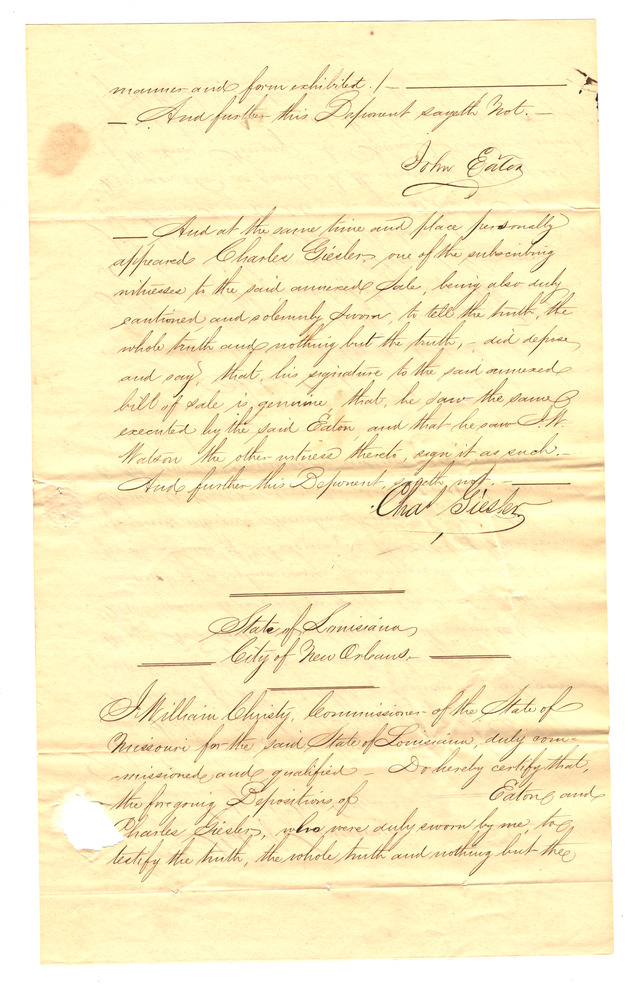 manner and form exhibited. / —
— And further this Deponent sayeth Not. —
John Eaton
— And at the same time and place personally
appeared Charles Giesler, one of the subscribing
witnesses to the said annexed Sale, being also duly
cautioned and solemnly sworn, to tell the truth, the
whole truth and nothing but the truth, – did depose
and say, that, his signature to the said annexed
bill of sale is genuine, that, he saw the same
executed by the said Eaton and that he saw
Watson the other witness thereto, sign it as such. –
And further this Deponent, sayeth not. —
Chas Giesler
State of Louisiana,
City of New Orleans.
I William Christy, Commissioner of the State of
Missouri for the said State of Louisiana, duly com-
-missioned and qualified – Do hereby certify that,
the foregoing Depositions, of Eaton and
Charles Giesler, who were duly sworn by me, to
testify the truth, the whole truth and nothing but the